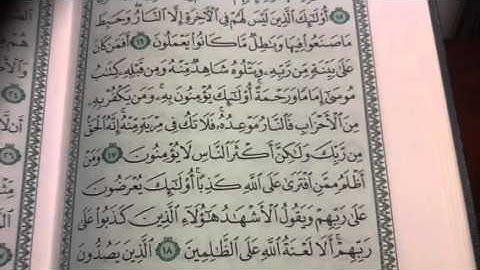 ١٥ أُوْلَٰٓئِكَ ٱلَّذِينَ لَيۡسَ لَهُمۡ فِي ٱلۡأٓخِرَةِ إِلَّا ٱلنَّارُۖ وَحَبِطَ
مَا صَنَعُواْ فِيهَا وَبَٰطِلٞ مَّا كَانُواْ يَعۡمَلُونَ ١٦ أَفَمَن كَانَ
عَلَىٰ بَيِّنَةٖ مِّن رَّبِّهِۦ وَيَتۡلُوهُ شَاهِدٞ مِّنۡهُ وَمِن قَبۡلِهِۦ كِتَٰبُ
مُوسَىٰٓ إِمَامٗا وَرَحۡمَةًۚ أُوْلَٰٓئِكَ يُؤۡمِنُونَ بِهِۦۚ وَمَن يَكۡفُرۡ بِهِۦ
مِنَ ٱلۡأَحۡزَابِ فَٱلنَّارُ مَوۡعِدُهُۥۚ فَلَا تَكُ فِي مِرۡيَةٖ مِّنۡهُۚ إِنَّهُ ٱلۡحَقُّ
مِن رَّبِّكَ وَلَٰكِنَّ أَكۡثَرَ ٱلنَّاسِ لَا يُؤۡمِنُونَ ١٧ وَمَنۡ
أَظۡلَمُ مِمَّنِ ٱفۡتَرَىٰ عَلَى ٱللَّهِ كَذِبًاۚ أُوْلَٰٓئِكَ يُعۡرَضُونَ
عَلَىٰ رَبِّهِمۡ وَيَقُولُ ٱلۡأَشۡهَٰدُ هَٰٓؤُلَآءِ ٱلَّذِينَ كَذَبُواْ عَلَىٰ
رَبِّهِمۡۚ أَلَا لَعۡنَةُ ٱللَّهِ عَلَى ٱلظَّٰلِمِينَ ١٨ ٱلَّذِينَ يَصُدُّونَ